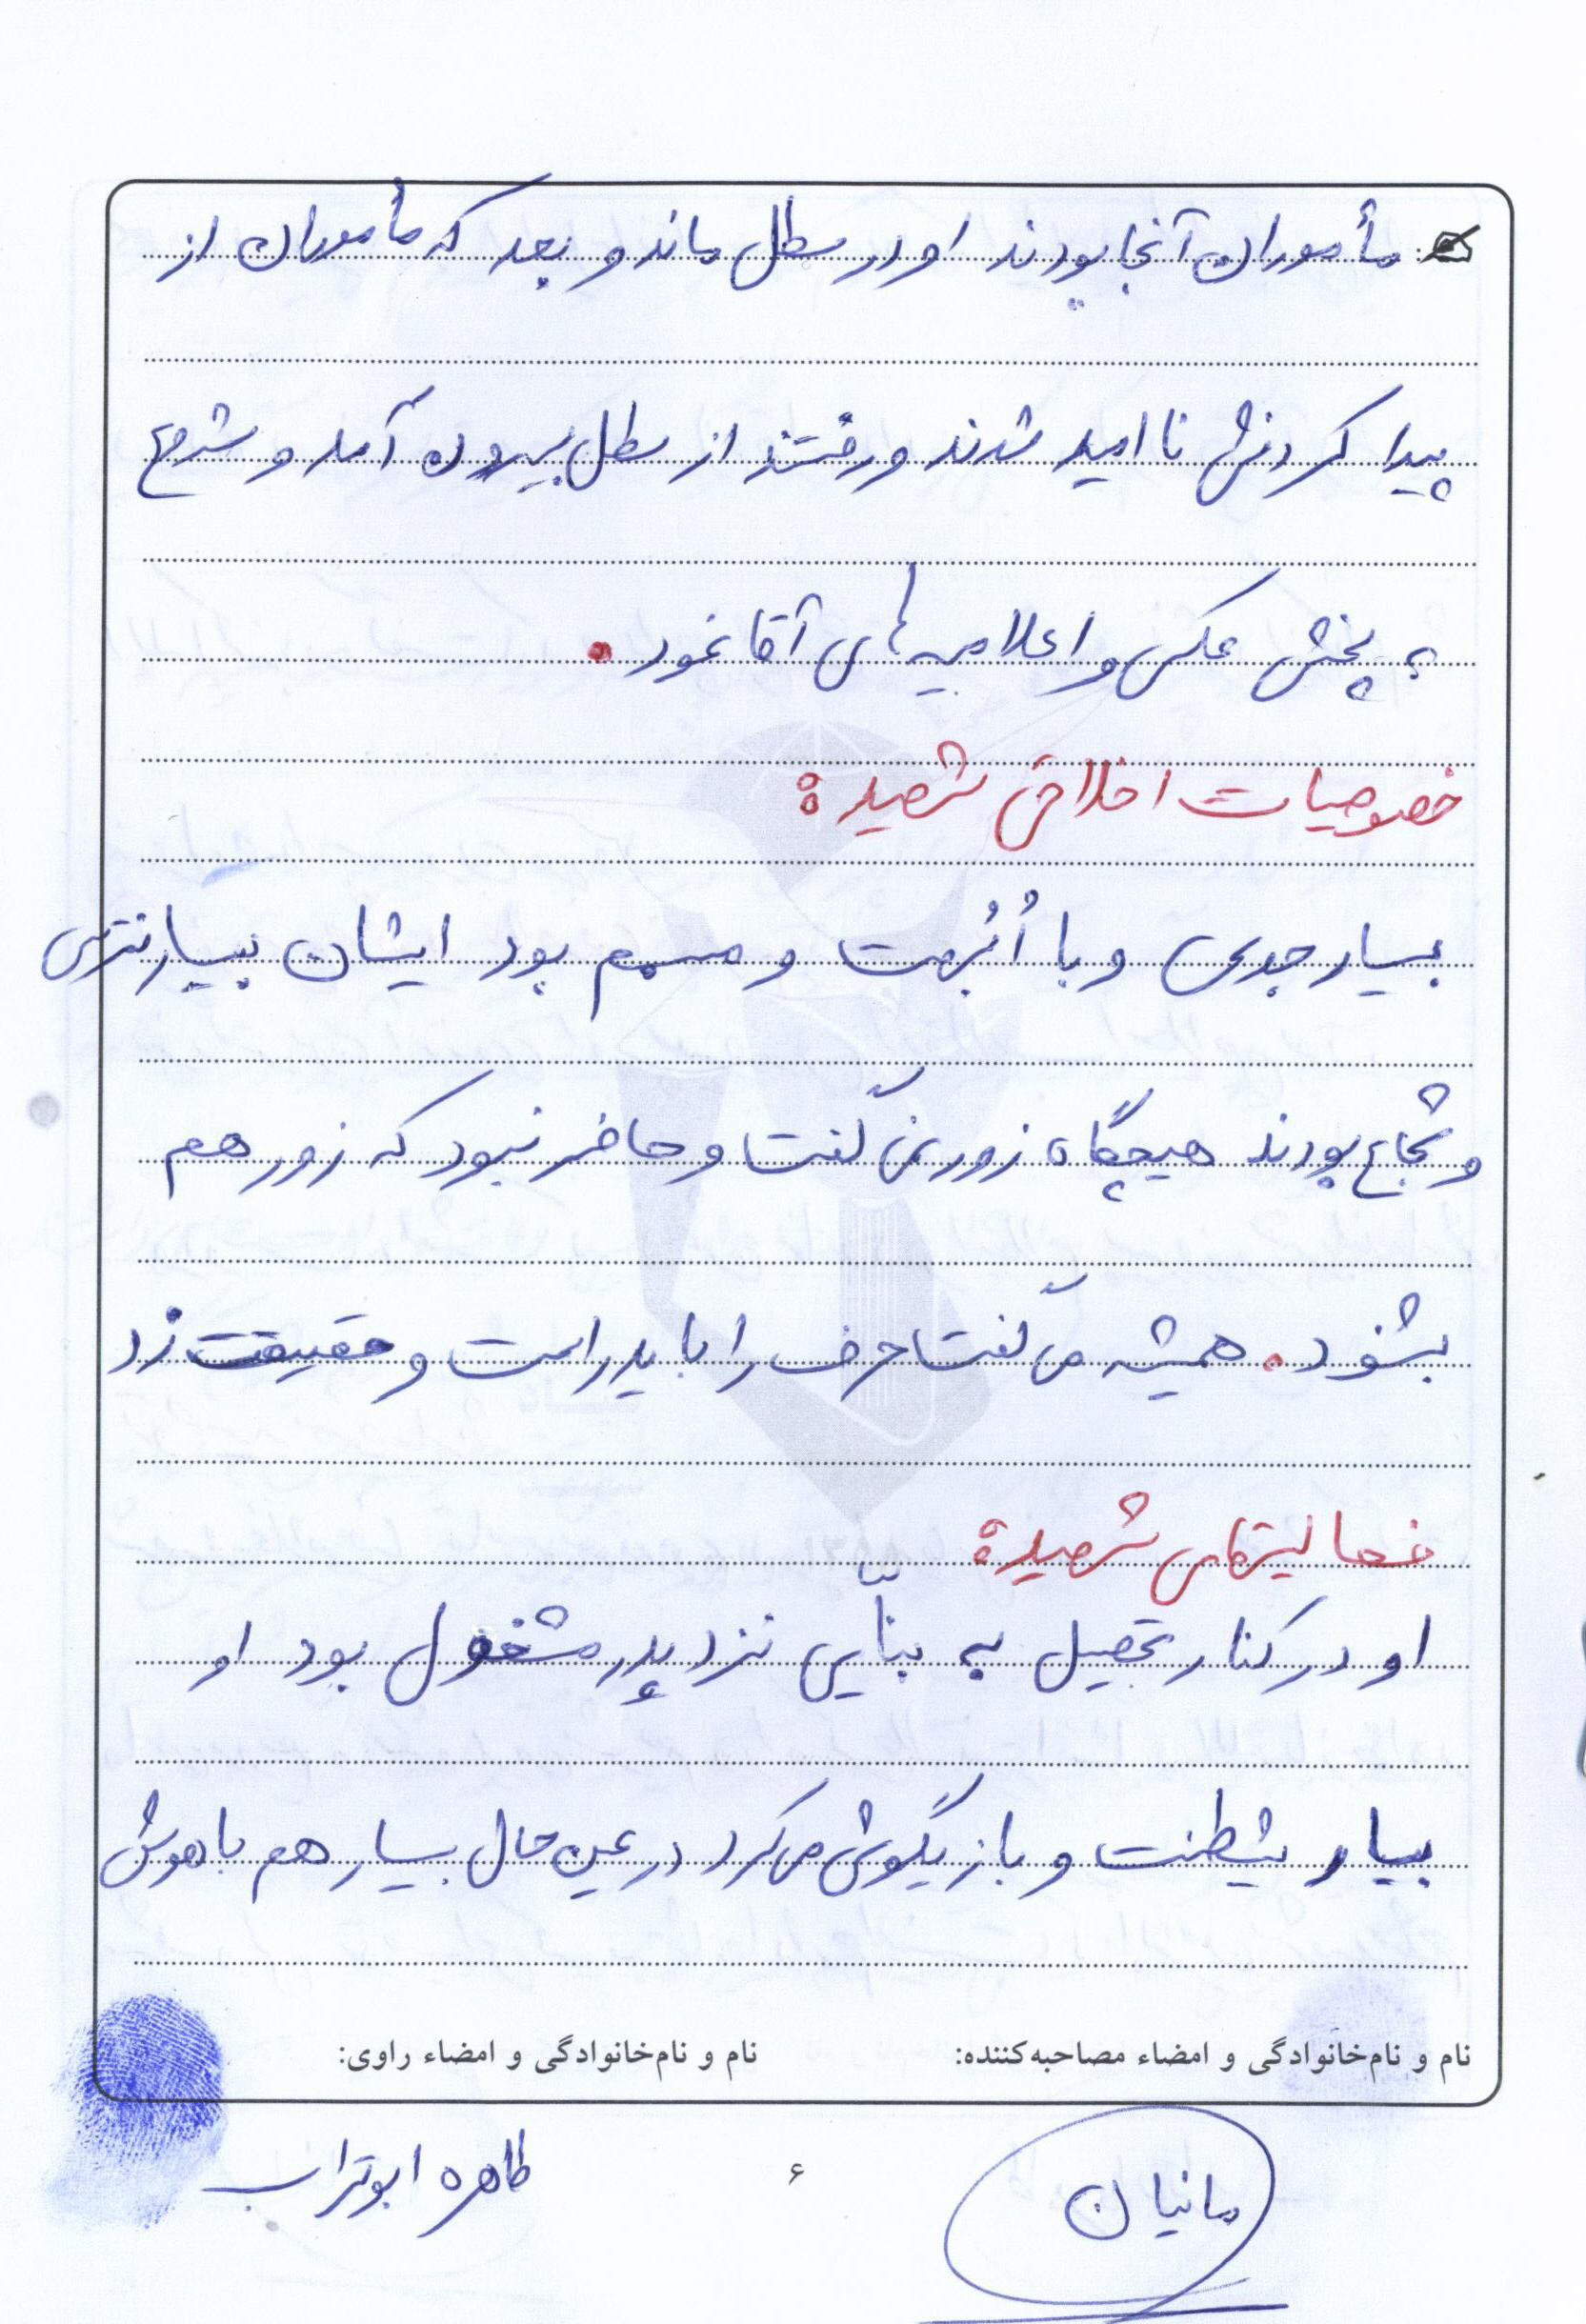 مأموران آنجا بودند او در سطل ماند و بعد که مأموران از
پیدا کردنش نا امید شدند و رفتند از سطل بیرون آمد و شروع
به پخش عکس و اعلامیه های آقا نمود.
خصوصیات اخلاقی شهید:
بسیار جدی و با اُبُهت و مصمم بود ایشان بسیار نترس
و شجاع بودند هیچگاه زور نمی گفت و حاضر نبود که زور هم
بشنود. همیشه می گفت حرف را باید راست و حقیقت زد
فعالیتهای شهید:
او در کنار تحصیل به بنّایی نزد پدر مشغول بود او
بسیار شیطنت و بازیگوشی می کرد در عین حال بسیار هم باهوش
نام و نام‌خانوادگی و امضاء مصاحبه‌کننده: نام و نام‌خانوادگی و امضاء راوی:
مانیان ۶ طاهره ابوتراب